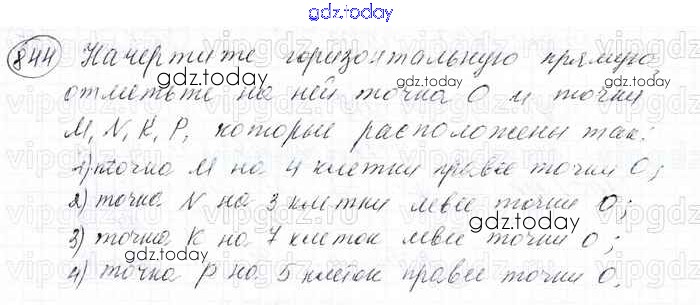 gdz.today
844 Начертите горизонтальную прямую,
gdz.today gdz.today
отметьте на ней точка О и точки
M, N, K, P, которые расположены так:
1) точка M на 4 клетки правее точки O;
gdz.today
2) точка N на 3 клетки левее точки O;
gdz.today
3) точка K на 7 клеток левее точки O;
4) точка P на 5 клеток правее точки O.
gdz.today gdz.today